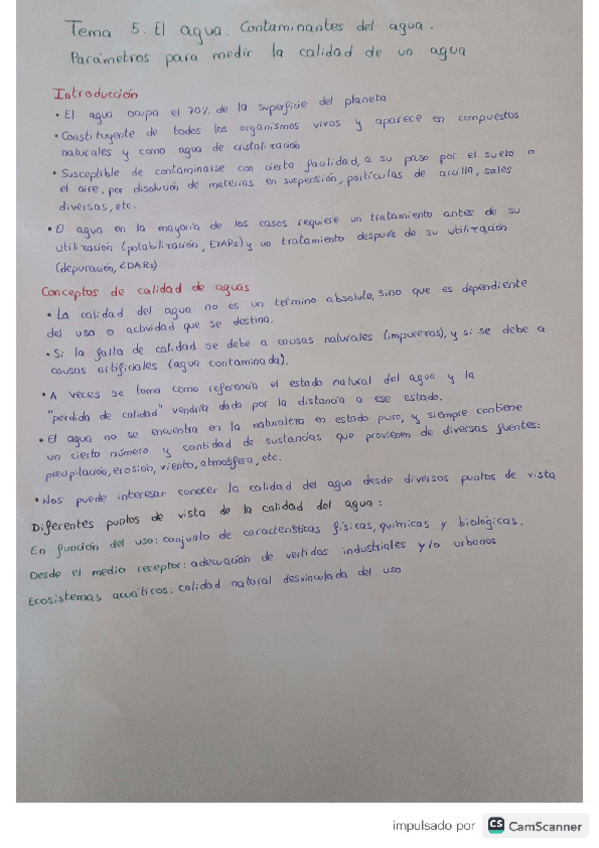 Tema 5. El agua. Contaminantes del agua.
Parámetros para medir la calidad de un agua
Introducción
• El agua ocupa el 70% de la superficie del planeta
• Constituyente de todos los organismos vivos y aparece en compuestos
naturales y como agua de cristalización
• Susceptible de contaminarse con cierta facilidad, a su paso por el suelo o
el aire, por disolución de materias en suspensión, partículas de arcilla, sales
diversas, etc.
• El agua en la mayoría de los casos requiere un tratamiento antes de su
utilización (potabilización, ETAPs) y un tratamiento después de su utilización
(depuración, EDARs)
Conceptos de calidad de aguas
• La calidad del agua no es un término absoluto, sino que es dependiente
del uso o actividad que se destina.
• Si la falta de calidad se debe a causas naturales (impurezas), y si se debe a
causas artificiales (agua contaminada).
• A veces se toma como referencia el estado natural del agua y la
"pérdida de calidad" vendría dada por la distancia a ese estado.
• El agua no se encuentra en la naturaleza en estado puro, y siempre contiene
un cierto número y cantidad de sustancias que provienen de diversas fuentes:
precipitación, erosión, viento, atmósfera, etc.
• Nos puede interesar conocer la calidad del agua desde diversos puntos de vista
Diferentes puntos de vista de la calidad del agua:
En función del uso: conjunto de características físicas, químicas y biológicas.
Desde el medio receptor: adecuación de vertidos industriales y/o urbanos
Ecosistemas acuáticos: calidad natural desvinculada del uso
impulsado por CS CamScanner